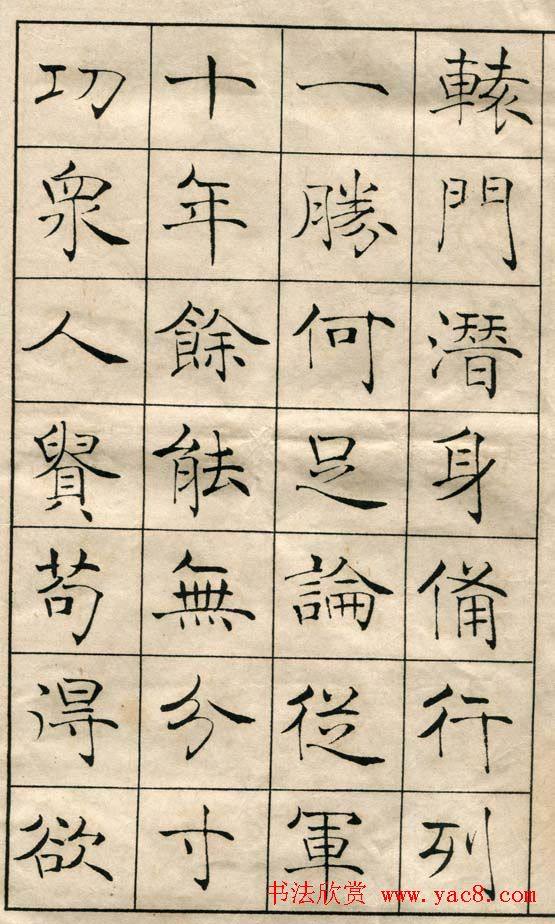 轅門潛身備行列
一勝何足論從軍
十年餘能無分寸
功衆人貴苟得欲
书法欣赏 www.yac8.com